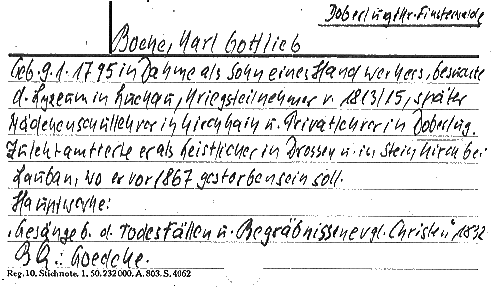 Doberlug Kr. Finsterwalde
Boche, Karl Gottlieb
Geb. 9.1.1795 in Dahme als Sohn eines Handwerkers, besuchte
d. Lyzeum in Luckau, Kriegsteilnehmer v. 1813/15, später
Mädchenschullehrer in Kirchhain u. Privatlehrer in Doberlug.
Zuletzt amtierte er als Geistlicher in Drossen u. in Steinkirch bei
Lauban, wo er vor 1867 gestorben sein soll.
Hauptwerke:
"Gesänge b. d. Todesfällen u. Begräbnissen evgl. Christen" 1832
BQ.: Goedeke.
Reg. 10. Stichnote. 1. 50. 232000. A. 803. S. 4062